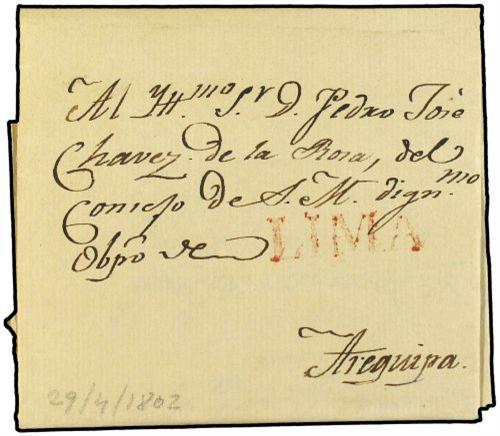 Al Yll.mo S.r D. Pedro José
Chavez de la Rosa, del
Consejo de S. M. dign.mo
Obpõ de LIMA
Arequipa.
29/4/1802